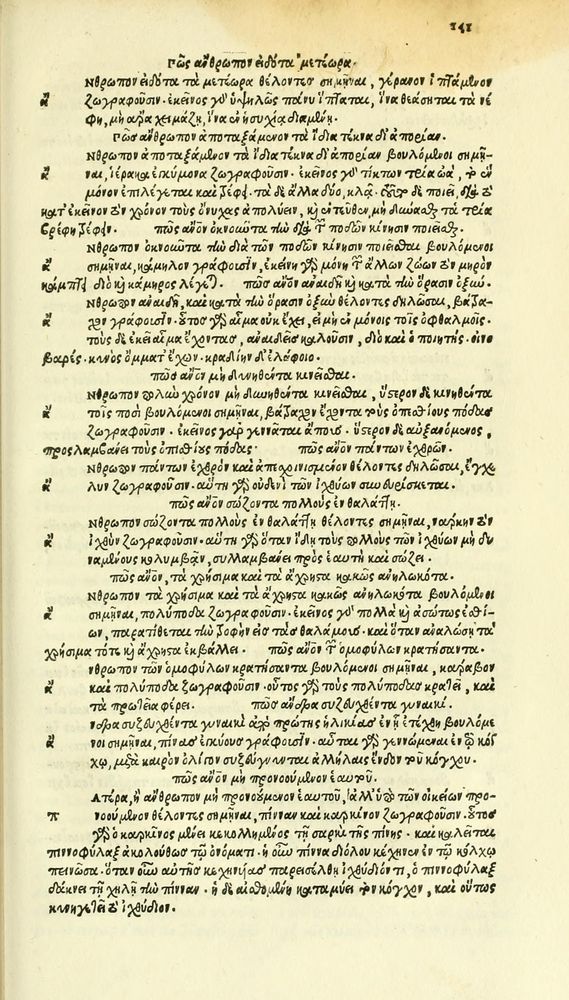 141
Πῶς ἄνθρωπον εἰδότα μετέωρα.
Νθρωπον εἰδότα τὰ μετέωρα θέλοντες σημῆναι, γέρανον ἱπτάμενον
ἄ ζωγραφοῦσιν· ἐκεῖνος γὰρ ὑψηλῶς πάνυ ἵπταται, ἵνα θεάσηται τὰ νέ
φη, μὴ ἄρα χειμάζῃ, ἵνα ἐν ἡσυχίᾳ διαμένῃ.
Πῶς ἄνθρωπον ἀποταξάμενον τὰ ἴδια τέκνα δι' ἀπορίαν.
Νθρωπον ἀποταξάμενον τὰ ἴδια τέκνα δι' ἀπορίαν βουλόμενοι σημῆ-
ἄ ναι, ἱέρακα ἐγκύμονα ζωγραφοῦσιν· ἐκεῖνος γὰρ τίκτων τρία ὠὰ, τὸ ἓν
μόνον ἐπιλέγεται καὶ τρέφει· τὰ δὲ ἄλλα δύο, κλᾷ· τοῦτο δὲ ποιεῖ, διὰ τὸ
κατ' ἐκεῖνον τὸν χρόνον τοὺς ὄνυχας ἀπολύειν, καὶ ἐντεῦθεν, μὴ δύνασθαι τὰ τρία
βρέφη τρέφειν. πῶς ἄνον ὀκνοῦντα τὴν διὰ τῶν ποδῶν κίνησιν ποιεῖσθαι.
Νθρωπον ὀκνοῦντα τὴν διὰ τῶν ποδῶν κίνησιν ποιεῖσθαι βουλόμενοι
ἄ σημῆναι, κάμηλον γράφουσιν, ἐκείνη γὰρ μόνη τῶν ἄλλων ζώων τὸν μηρὸν
κάμπτει, διὸ καὶ κάμηρος λέγεται. πῶς ἄνον ἀναιδῆ καὶ κατὰ τὴν ὅρασιν ὀξύν.
Νθρωπον ἀναιδῆ, καὶ κατὰ τὴν ὅρασιν ὀξὺν θέλοντες δηλῶσαι, βάτρα-
ἄ χον γράφουσιν· οὗτος γὰρ αἷμα οὐκ ἔχει, εἰ μὴ ἐν μόνοις τοῖς ὀφθαλμοῖς.
τοὺς δὲ ἐκεῖ αἷμα ἔχοντας, ἀναιδεῖς καλοῦσιν, διὸ καὶ ὁ ποιητής· οἰνο
βαρές· κυνὸς ὄμματ' ἔχων· κραδίην δ' ἐλάφοιο.
πῶς ἄνον μὴ δυνηθέντα κινεῖσθαι.
Νθρωπον πολὺν χρόνον μὴ δυνηθέντα κινεῖσθαι, ὕστερον δὲ κινηθέντα
ἄ τοῖς ποσὶ βουλόμενοι σημῆναι, βάτραχον ἔχοντα τοὺς ὀπισθίους πόδας
ζωγραφοῦσιν· ἐκεῖνος γὰρ γεννᾶται ἄπους· ὕστερον δὲ αὐξανόμενος,
προσλαμβάνει τοὺς ὀπισθίους πόδας. πῶς ἄνον πάντων ἐχθρόν.
Νθρωπον πάντων ἐχθρὸν καὶ ἀπεσχοινισμένον θέλοντες δηλῶσαι, ἔγχε
ἄ λυν ζωγραφοῦσιν· αὕτη γὰρ οὐδενὶ τῶν ἰχθύων συνευρίσκεται.
πῶς ἄνον σώζοντα πολλοὺς ἐν θαλάττῃ.
Νθρωπον σώζοντα πολλοὺς ἐν θαλάττῃ θέλοντες σημῆναι, νάρκην τὸν
ἄ ἰχθῦν ζωγραφοῦσιν· αὕτη γὰρ ὅταν ἴδῃ τοὺς πολλοὺς τῶν ἰχθύων μὴ δυ
ναμένους κολυμβᾶν, συλλαμβάνει πρὸς ἑαυτὴ καὶ σώζει.
πῶς ἄνον, τὰ χρήσιμα καὶ τὰ ἄχρηστα κακῶς ἀνηλωκότα.
Νθρωπον τὰ χρήσιμα καὶ τὰ ἄχρηστα κακῶς ἀνηλωκότα βουλόμενοι
ἄ σημῆναι, πολύποδα ζωγραφοῦσιν· ἐκεῖνος γὰρ πολλὰ καὶ ἀσώτως ἐσθί
ων, παρατίθεται τὴν τροφὴν εἰς τὰς θαλάμους· καὶ ὅταν ἀναλώσῃ τὰ
χρήσιμα τότε καὶ ἄχρηστα ἐκβάλλει. πῶς ἄνον τῶν ὁμοφύλων κρατήσαντα.
νθρωπον τῶν ὁμοφύλων κρατήσαντα βουλόμενοι σημῆναι, κάραβον
ἄ καὶ πολύποδα ζωγραφοῦσιν· οὗτος γὰρ τοὺς πολύποδας κρατεῖ, καὶ
τὰ πρωτεῖα φέρει. πῶς ἄνδρα συζευχθέντα γυναικί.
νδρα συζευχθέντα γυναικὶ ἀπὸ πρώτης ἡλικίας ἐν ᾗ ἐτέχθη βουλόμε
ἄ νοι σημῆναι, πίννας ἐγκύους γράφουσιν· αὗται γὰρ γεννώμεναι ἐν τῷ κόγ
χῳ, μετὰ καιρὸν ὀλίγον συζεύγνυνται ἀλλήλαις ἔνδον τοῦ κόγχου.
πῶς ἄνον μὴ προνοούμενον ἑαυτοῦ.
Ατέρα, ἢ ἄνθρωπον μὴ προνούμενον ἑαυτοῦ, ἀλλ' ὑπὸ τῶν οἰκείων προ-
π νοούμενον θέλοντες σημῆναι, πίνναν καὶ καρκίνον ζωγραφοῦσιν· οὗτος
γὰρ ὁ καρκίνος μένει κεκολλημένος τῇ σαρκὶ τῆς πίνης· καὶ καλεῖται
πιννοφύλαξ ἀκολούθως τῷ ὀνόματι· ἡ οὖν πίννα διόλου κέχηνεν ἐν τῷ κόλχῳ
πεινῶσα· ὅταν οὖν αὐτῆς κεχηνυίας παρεισέλθῃ ἰχθύδιόν τι, ὁ πιννοφύλαξ
δάκνει τῇ χηλῇ τὴν πίνναν· ἡ δὲ αἰσθομένη καταμύει τὸν κόγχον, καὶ οὕτως
κυνηγετεῖ τὸ ἰχθύδιον.